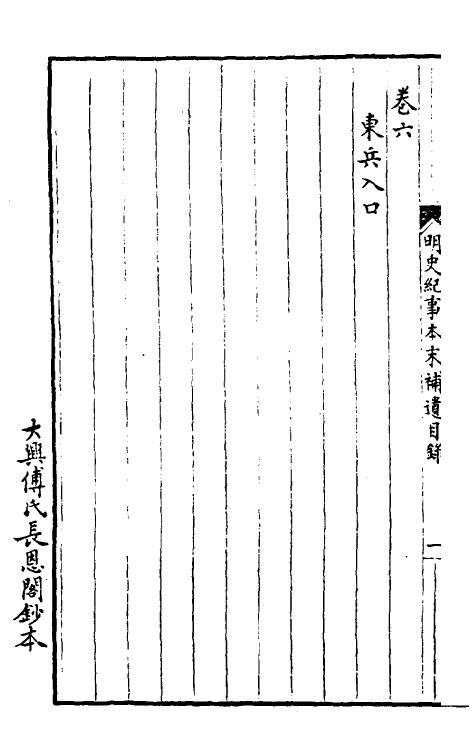 明史紀事本末補遺目錄
一
卷六
東兵入口
大興傅氏長恩閣鈔本